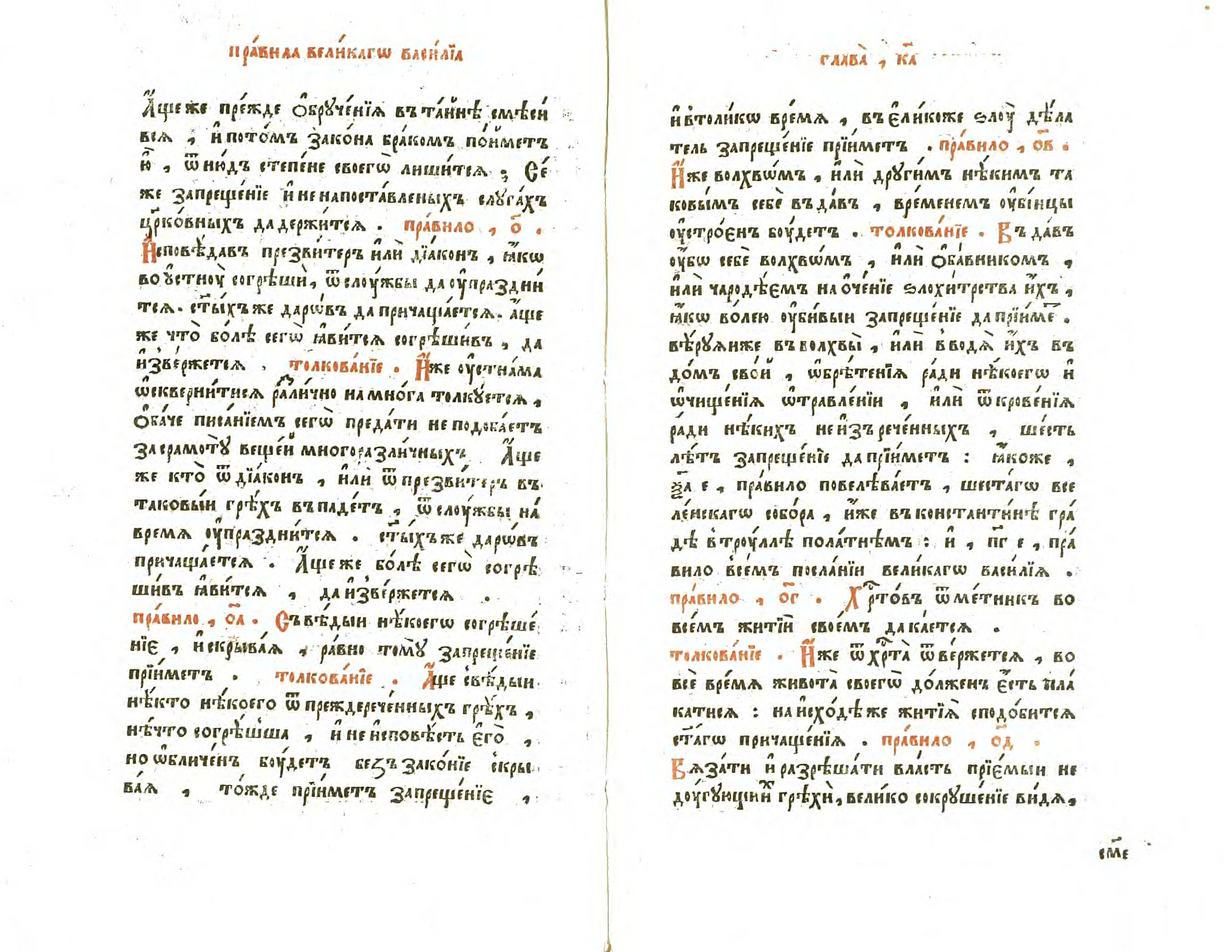 пра́вила вели́кагѡ васи́лїа
А҆́ще же пре́жде ѻ҆бруче́нїѧ въ та́йнѣ смѣси́
всѧ , и҆ пото́мъ зако́на бра́комъ по́йметъ
ю҆̀ , ѿню́дъ степе́не своегѡ̀ лиши́тсѧ ; Се́
же запреще́нїе и҆ не на поста́вленыхъ слуга́хъ
цр҃ко́вныхъ да держи́тсѧ . пра́вило , о҃ .
И҆сповѣ́давъ презви́теръ и҆лѝ дїа́конъ , ꙗ҆́кѡ
во ᲂу҆стноу̀ согрѣшѝ, ѿ слоу́жбы да ᲂу҆праздни́
тсѧ. ст҃ы́хъ же даро́въ да причаща́етсѧ. а҆́ще
же что̀ бо́лѣ сегѡ̀ ꙗ҆ви́тсѧ согрѣши́въ , да
и҆зве́ржетсѧ . толкова́нїе . И҆́же ᲂу҆стна́ма
ѡ҆скверни́тисѧ разли́чно на мно́га толкꙋ́етсѧ ,
Ѻ҆ба́че писа́нїемъ сегѡ̀ преда́ти не подоба́етъ
за срамотꙋ̀ веще́й многоразли́чныхъ А҆́ще
же кто̀ ѿ дїа́конъ , и҆лѝ ѿ презви́теръ въ
таковы́й грѣ́хъ въпаде́тъ , ѿ слоу́жбы на́
время ᲂу҆праздни́тсѧ . ст҃ы́хъ же даро́въ
причаща́етсѧ . А҆́ще же бо́лѣ сегѡ̀ согрѣ
ши́въ ꙗ҆ви́тсѧ , да и҆зве́ржетсѧ .
пра́вило , о҃а . Съвѣ́дыи нѣ́коегѡ согрѣше́
нїє , и҆ скрыва́ѧ , ра́вно томꙋ̀ запреще́нїе
прїи́метъ . толкова́нїе . А҆́ще свѣ́дыи
нѣ́кто нѣ́коего ѿ преждерече́нныхъ грѣ́хъ ,
нѣ́что согрѣ́шша , и҆ не и҆сповѣ́сть є҆го̀ ,
но ѡ҆бличе́нъ боу́детъ без̾зако́нїе скры
ва́ѧ , то́жде прїи́метъ запреще́нїє ,
глава̀ , к҃а
и҆ в толи́кѡ вре́мѧ , въ є҆ли́коже ѕлоу̀ дѣ́ла
тель запреще́нїе прїи́метъ . пра́вило , о҃в .
И҆́же волхвѡ́мъ , и҆лѝ други́мъ нѣ́кимъ та
ковы́мъ себѐ въда́въ , вре́менемъ ᲂу҆бі́ицы
ᲂу҆стро́єнъ боу́детъ . толкова́нїе . Въда́въ
ᲂу҆́бѡ себѐ волхвѡ́мъ , и҆лѝ ѻ҆ба́вникомъ ,
и҆лѝ чародѣ́ємъ на ᲂу҆че́нїе ѕлохи́трства и҆́хъ ,
ꙗ҆́кѡ во́лею ᲂу҆би́выи запреще́нїе да прїи́ме .
вѣ́руѧи же в волхвы̀ , и҆лѝ вводѧ̀ и҆́хъ въ
до́мъ сво́й , ѡ҆брѣ́тенїѧ ра́ди нѣ́коегѡ и҆
ѡ҆чище́нїѧ ѡ҆травле́нїи , и҆лѝ ѿкрове́нїѧ
ра́ди нѣ́кихъ неи҆зърече́нныхъ , ше́сть
лѣ́тъ запреще́нїе да прїи́метъ : ꙗ҆́коже ,
ѯ҃а е , пра́вило повелѣва́етъ , шеста́гѡ все
ле́нскагѡ собо́ра , и҆́же въ константи́нѣ гра́
дѣ в троу́ллѣ пола́тнѣмъ : и҆ , п҃г е , пра́
вило всѣ́мъ посла́нїи вели́кагѡ васи́лїа .
пра́вило , о҃г . Хр҃то́въ ѿме́тникъ во
все́мъ житїѝ свое́мъ да ка́етсѧ .
толкова́нїе . И҆́же ѿ хр҃та̀ ѿве́ржетсѧ , во
всѐ вре́мѧ живота̀ своегѡ̀ до́лженъ є҆́сть пла́
катисѧ : на и҆схо́дѣ же житїѧ̀ сподо́битсѧ
ст҃а́гѡ причаще́нїѧ . пра́вило , о҃д .
Вѧза́ти и҆ разрѣша́ти вла́сть прїе́мыи не
доу́гующи́й грѣхѝ, вели́ко сокрꙋше́нїе ви́дѧ,
см҃е